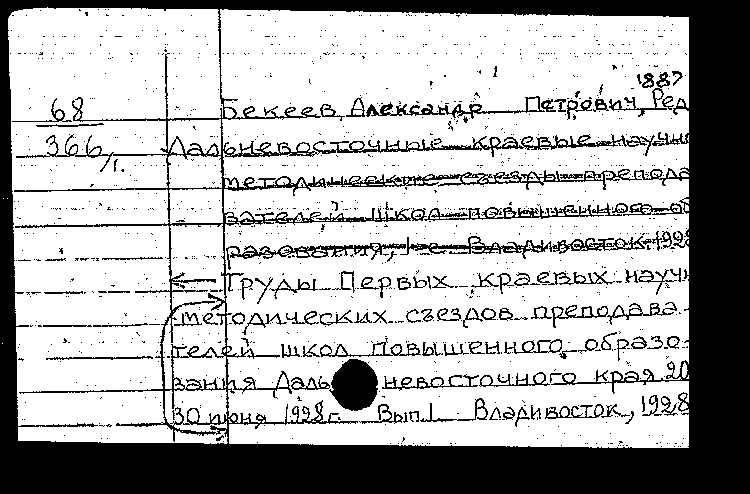 1887
68 Бекеев, Александр Петрович, Ред
366/1. Дальневосточные краевые научно
методические съезды препода
вателей школ повышенного об
разования, 1-е. Владивосток 1928
Труды Первых краевых научн
методических съездов преподава-
телей школ повышенного образо-
вания Дальневосточного края 20
30 июня 1928 г. Вып. 1. Владивосток, 1928